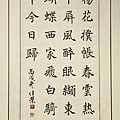 楊花撲帳春雲熱
甲屏風醉眼纈東
蝴蝶西家飛白騎
年今日歸